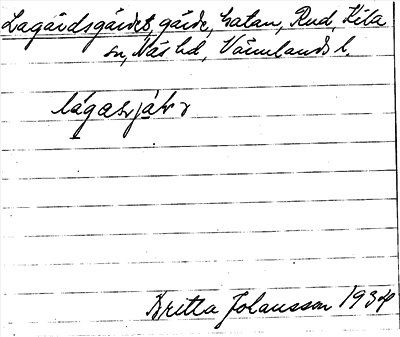 Lagårdsgärdet, gärde, Gatan, Rud, Kila
sn, Näs hd, Värmlands l.
lágasjál r
Britta Johansson 1934